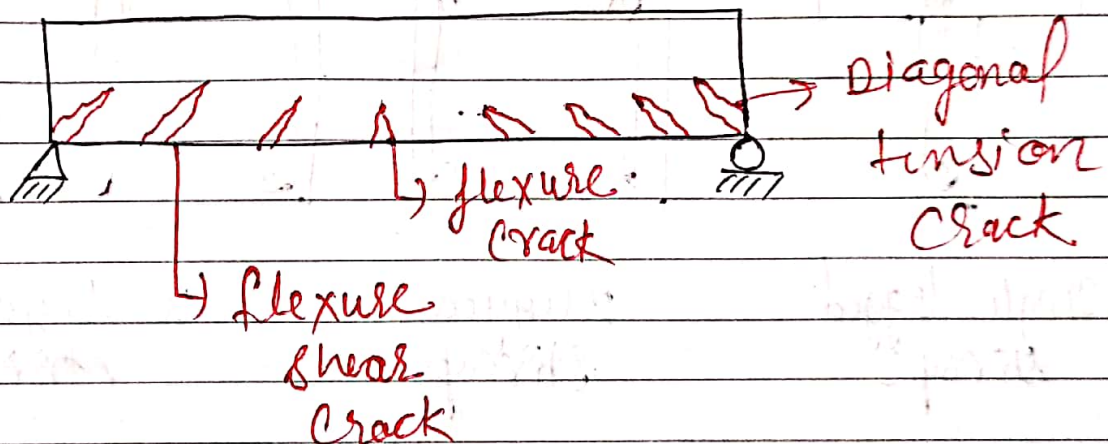 Diagonal
tension
crack
flexure
crack
flexure
shear
crack